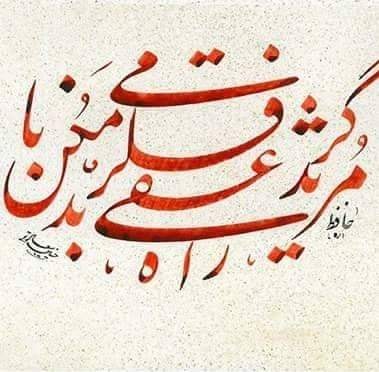 گر مرید راه عشقی فکر بدنامی مکن
حافظ